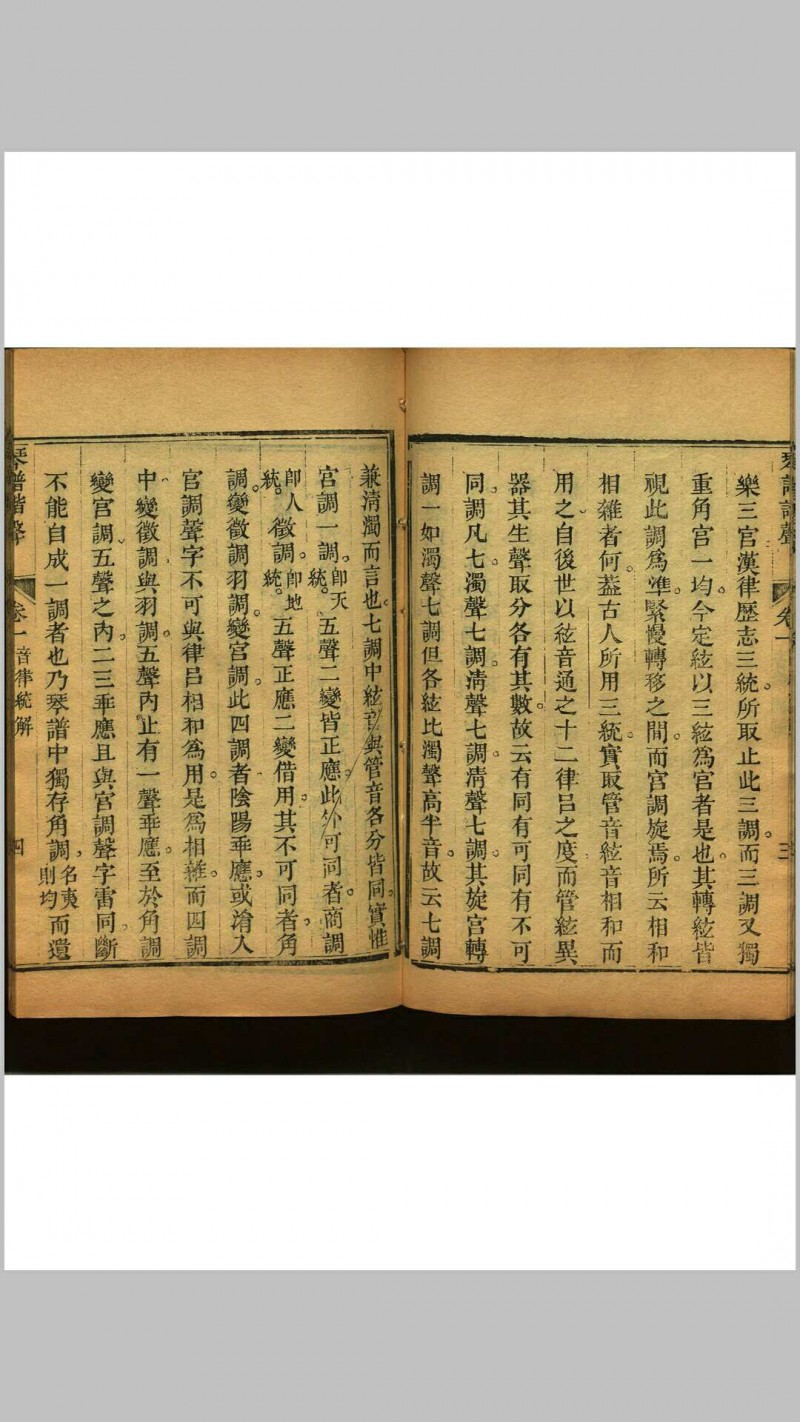 樂三官漢律歷志三統。所取止此三調。而三調又獨
重角宮一均。今定絃以三絃為宮者是也。其轉絃皆
視此調爲準。緊慢轉移之間。而宮調旋焉。所云相和
相雜者何。葢古人所用三統。實取管音絃音相和而
用之。自後世以絃音通之十二律呂之度。而管絃異
器。其生聲取分各有其數。故云有同有可同有不可
同。調凡七。濁聲七調。清聲七調。清聲七調。其旋宮轉
調一如濁聲七調。但各絃比濁聲高半音。故云七調
三
兼淸濁而言也。七調中絃音與管音各分皆同。實惟
宮調一調。卽天統。五聲二變皆正應。此外可同者。商調
卽人統。徵調。卽地統。五聲正應。二變借用。其不可同者。角
調。變徵調。羽調。變宮調。此四調者。陰陽乖應。或淆入
宮調聲字。不可與律呂相和爲用。是爲相雜。而四調
中。變徵調與羽調。五聲內止有一聲乖應。至於角調
變宮調。五聲之內。二三乖應。且與宮調聲字雷同。斷
不能自成一調者也。乃琴譜中獨存角調。名夷則均。而遺
琴譜諧聲 卷一 音律統解 四